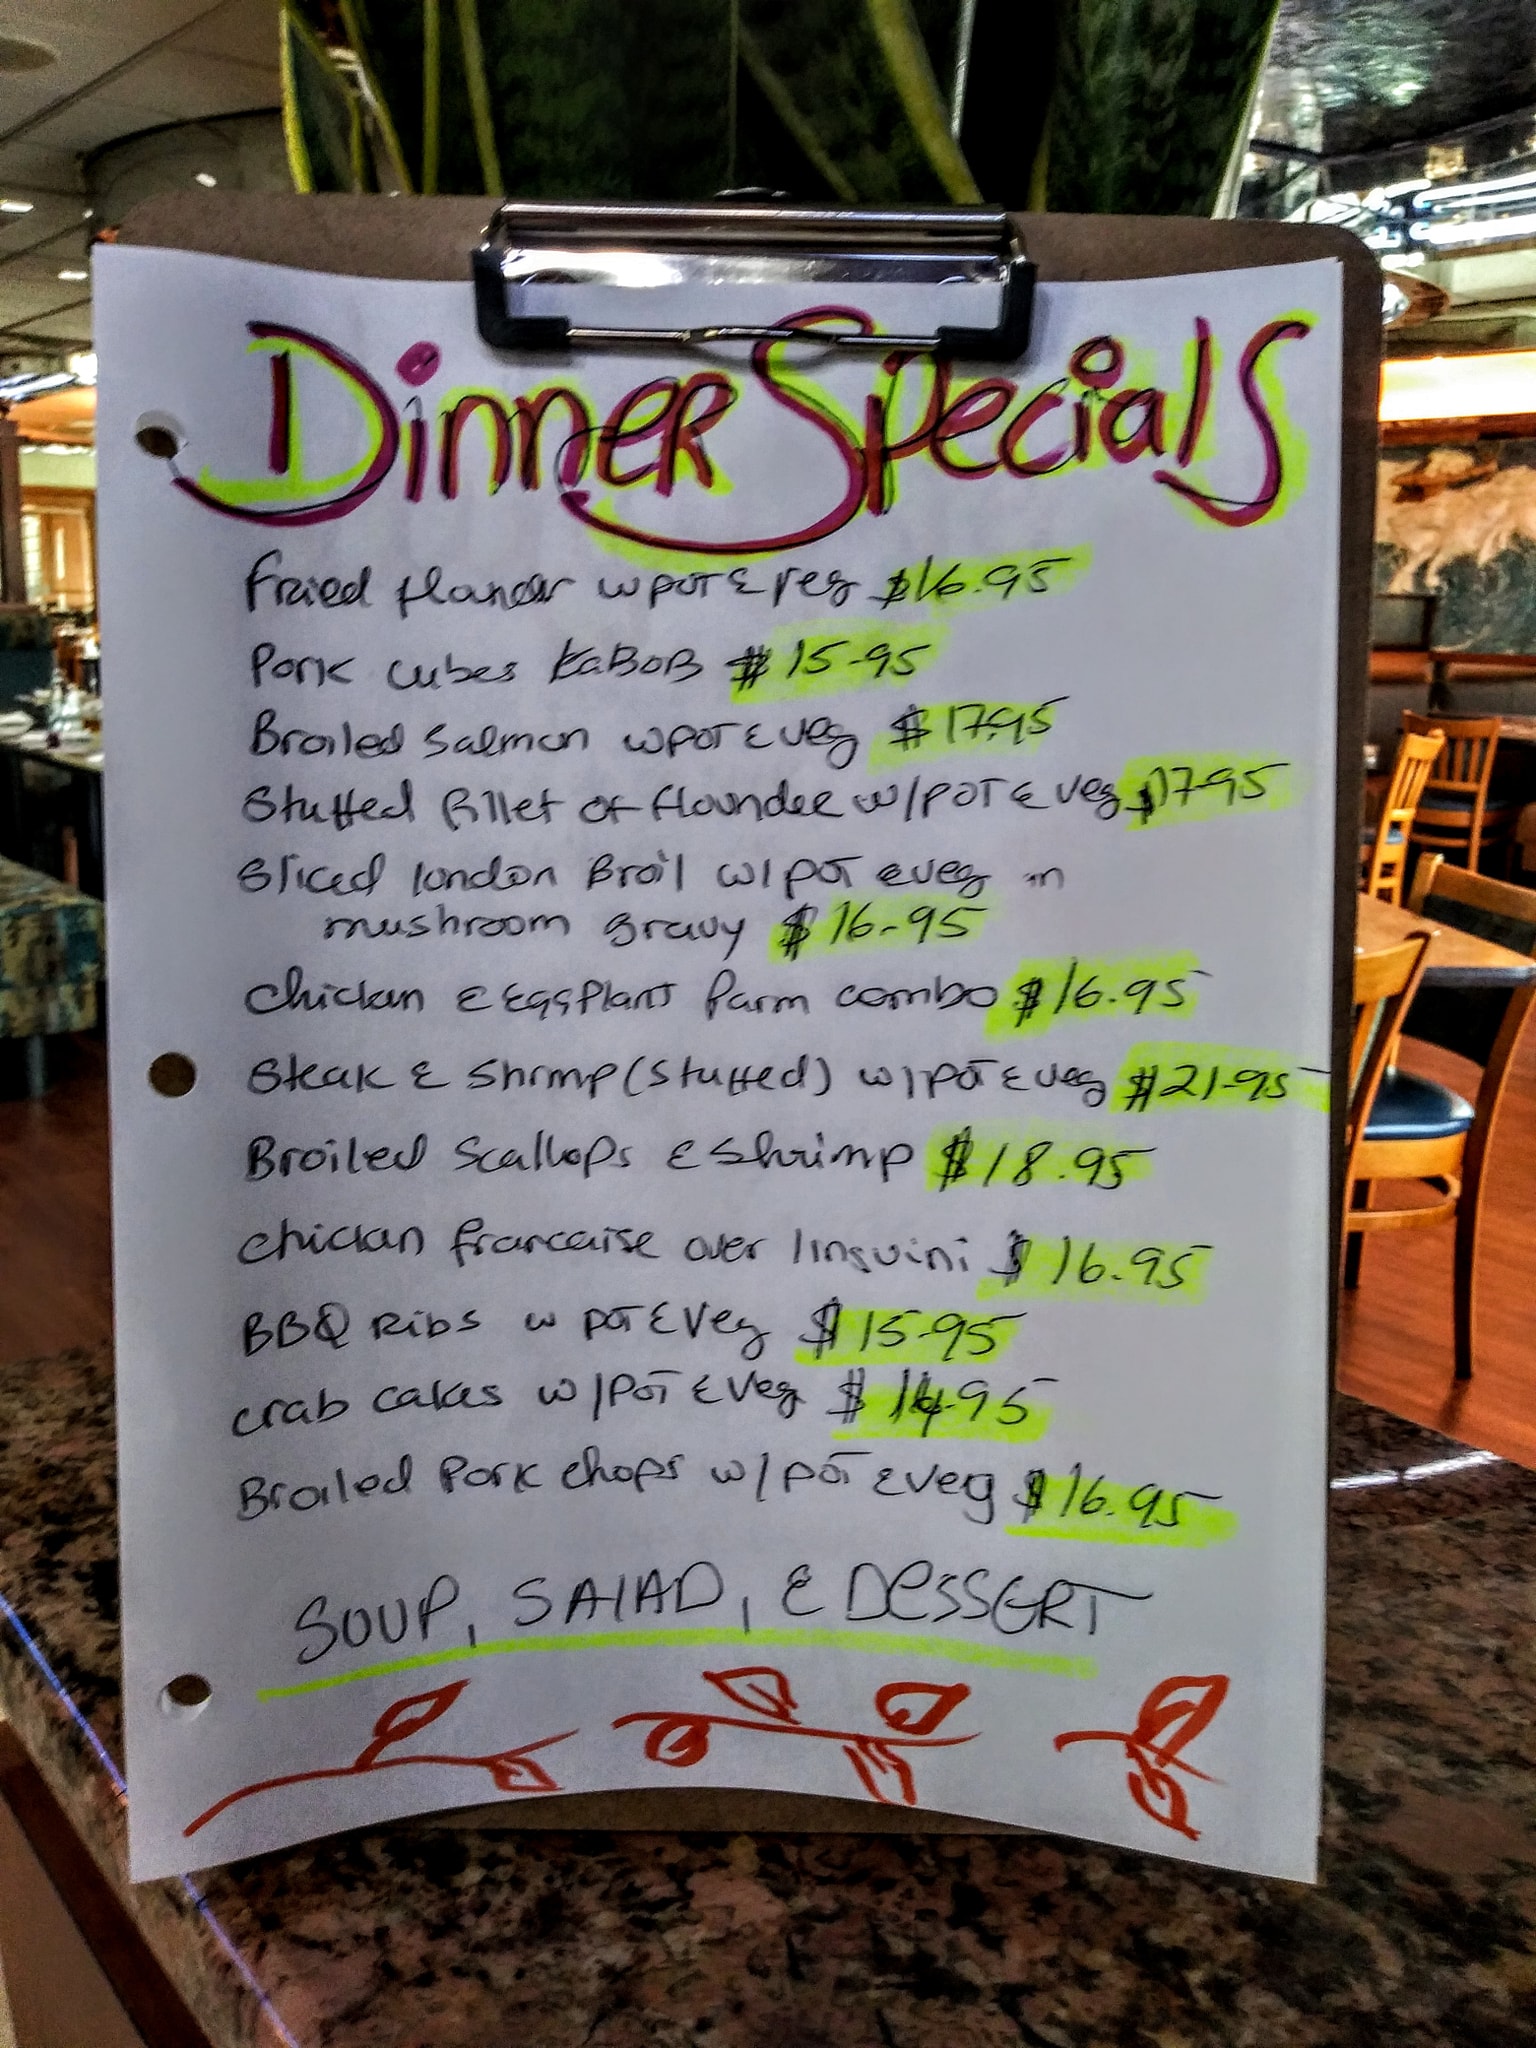 Dinner Specials
Fried flander w pot & veg $16.95
Pork cubes KaBoB $15.95
Broiled Salmon w pot & veg $17.95
Stuffed fillet of flounder w/pot & veg $17.95
Sliced london Broil w/pot & veg in
mushroom gravy $16.95
Chickan & Eggplant Parm combo $16.95
Steak & Shrimp (stuffed) w/pot & veg $21.95
Broiled Scallops & Shrimp $18.95
Chickan francaise over linguini $16.95
BBQ Ribs w pot & Veg $15.95
crab cakes w/pot & Veg $14.95
Broiled Pork chops w/pot & veg $16.95
SOUP, SAlAD, & DeSSERT